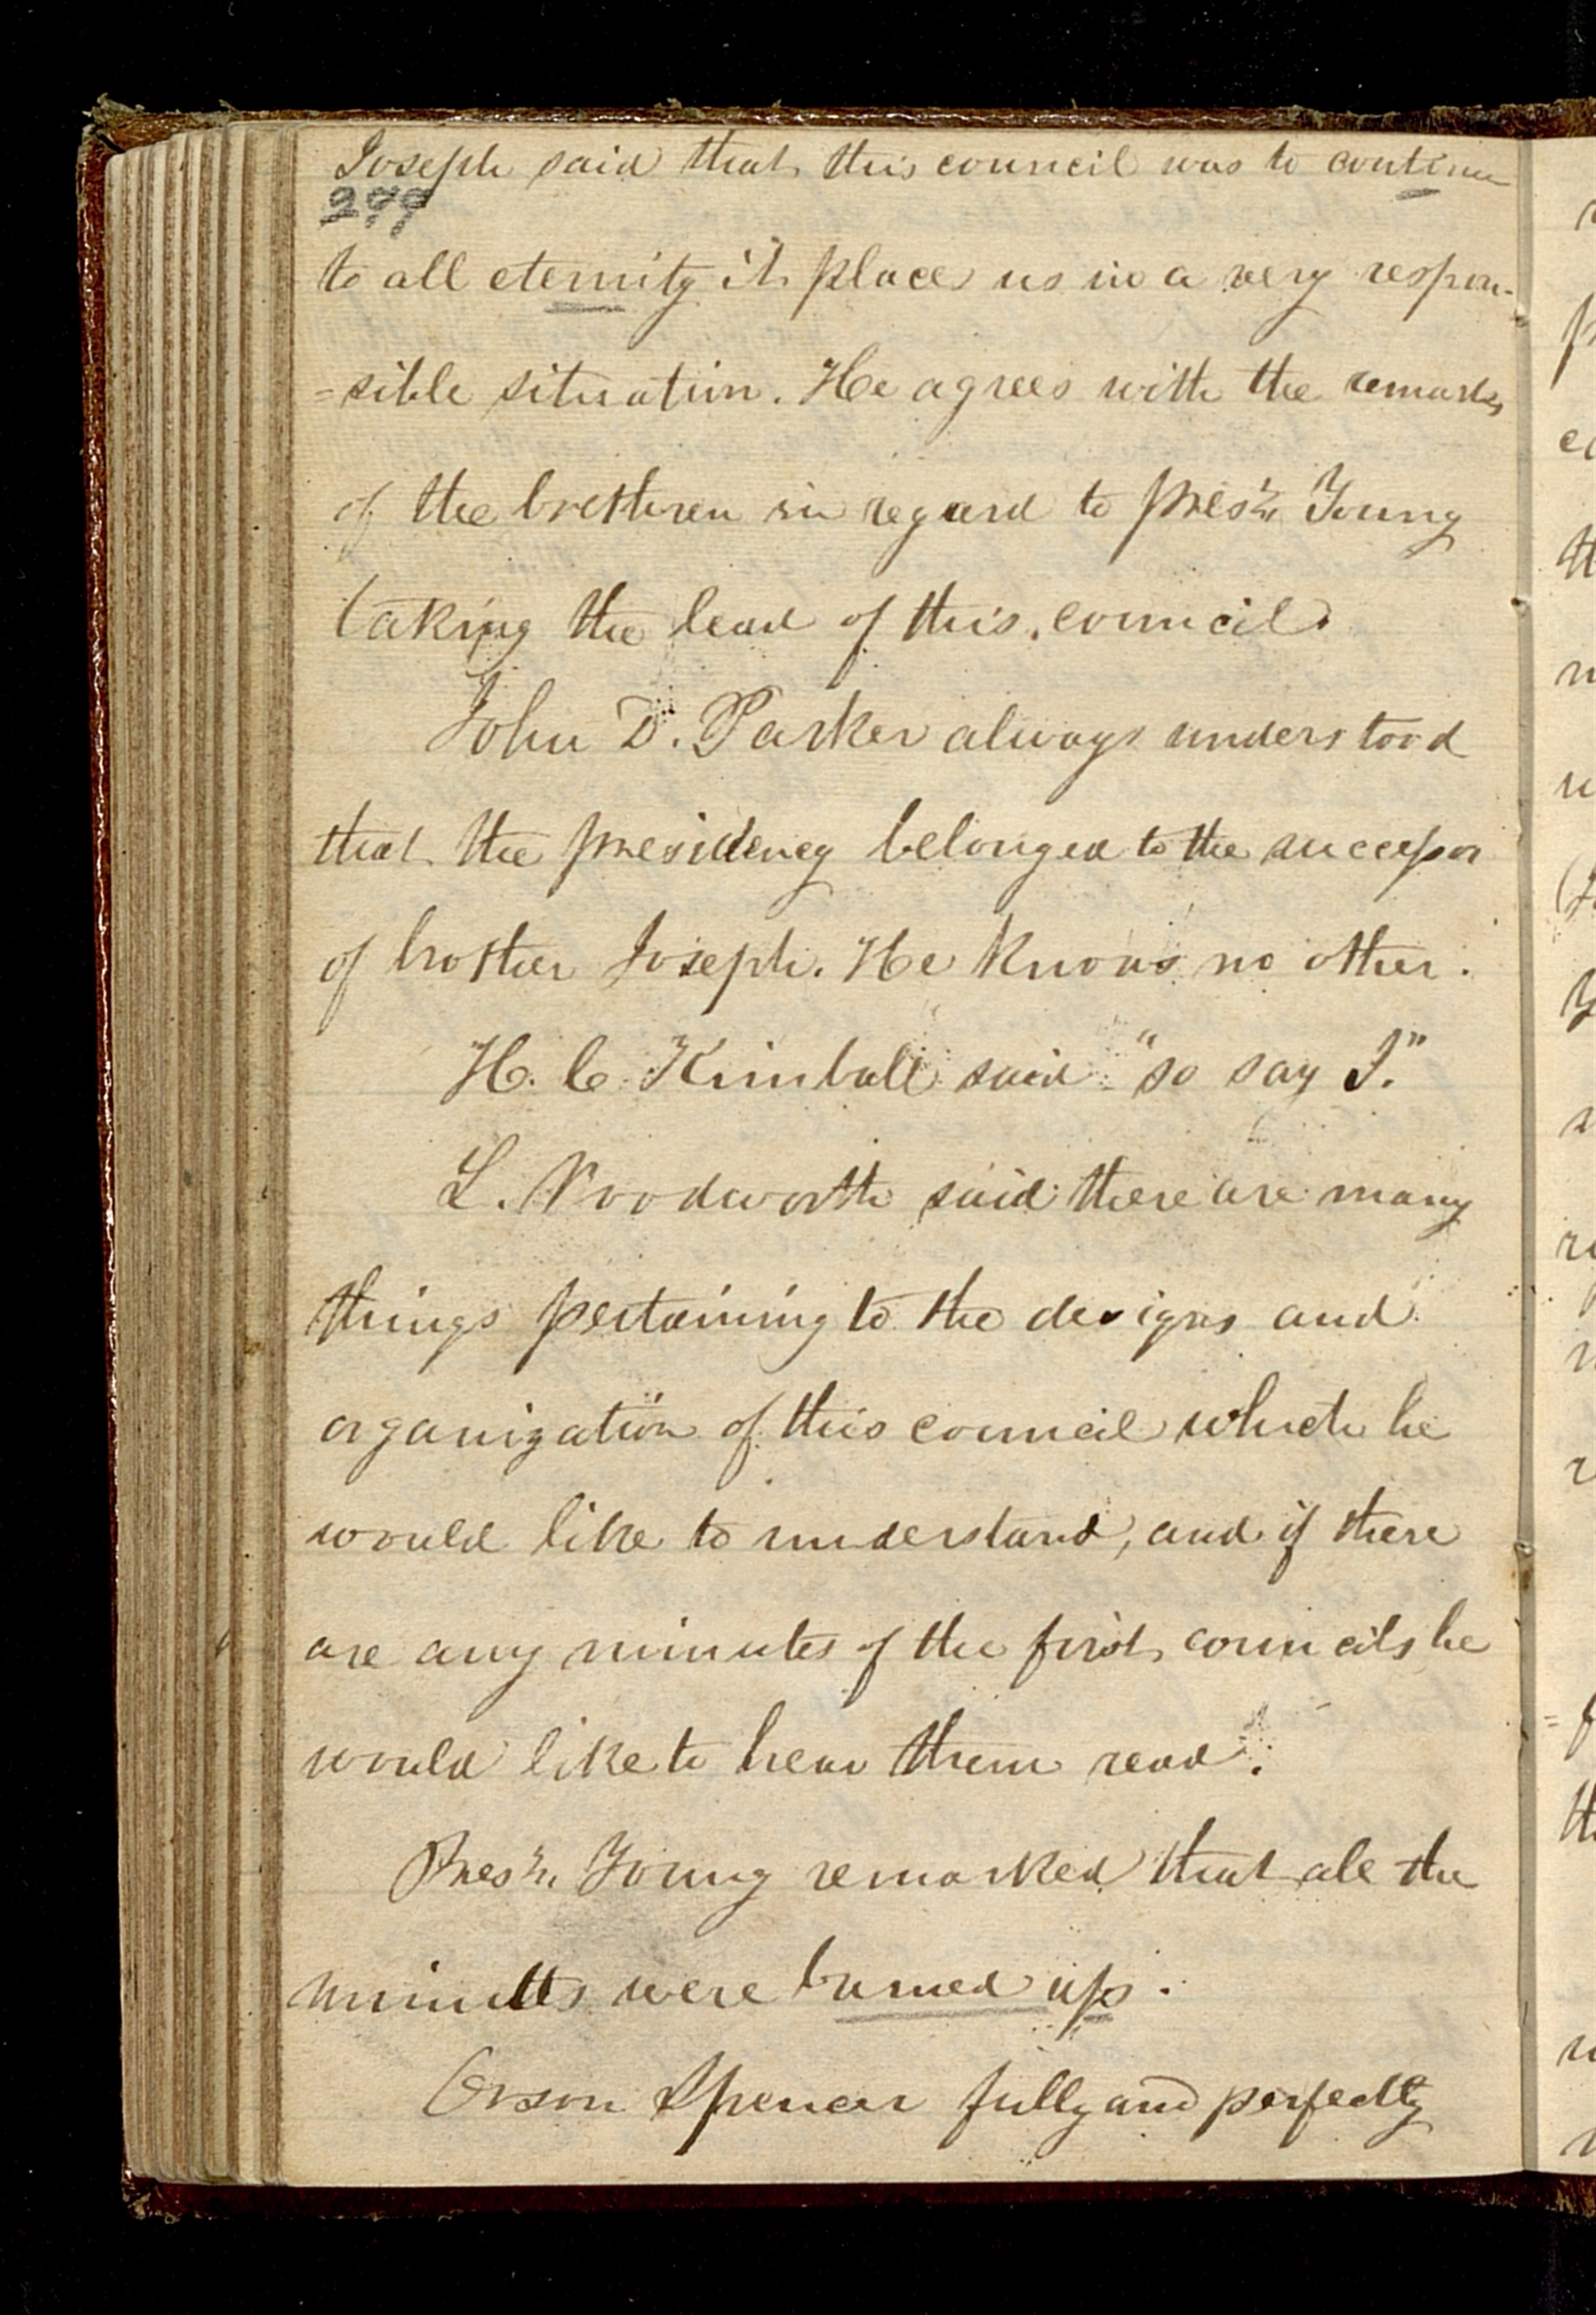 Joseph said that this council was to continue
299
to all eternity it places us in a very respon-
=sible situation. He agrees with the remarks
of the brethren in regard to pres't, Young
taking the lead of this council.
John D. Parker always understood
that the presidency belonged to the successor
of brother Joseph. He knows no other.
H. C. Kimball said "so say I."
L. Woodworth said there are many
things pertaining to the designs and
organization of this council which he
would like to understand, and if there
are any minutes of the first councils he
would like to hear them read.
Pres't, Young remarked that all the
minutes were burned up.
Orson Spencer fully and perfectly